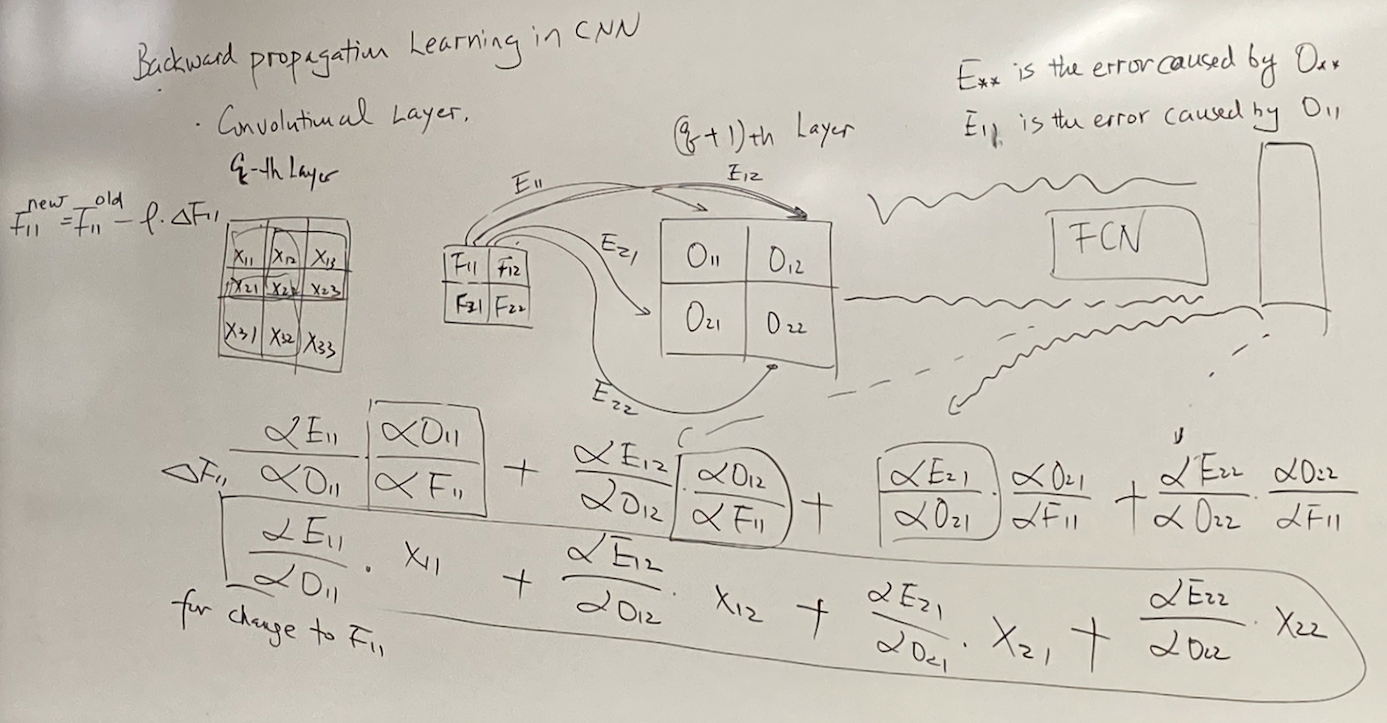 Backward propagation Learning in CNN
· Convolutional Layer.
E** is the error caused by O**
E11 is the error caused by O11
q-th Layer
(q+1)-th Layer
F11^new = F11^old - ρ·ΔF11
X11 X12 X13
X21 X22 X23
X31 X32 X33
F11 F12
F21 F22
E11
E12
E21
E22
O11 O12
O21 O22
FCN
ΔF11 αE11/αO11 · αO11/αF11 + αE12/αO12 · αO12/αF11 + αE21/αO21 · αO21/αF11 + αE22/αO22 · αO22/αF11
αE11/αO11 · X11 + αE12/αO12 · X12 + αE21/αO21 · X21 + αE22/αO22 · X22
for change to F11